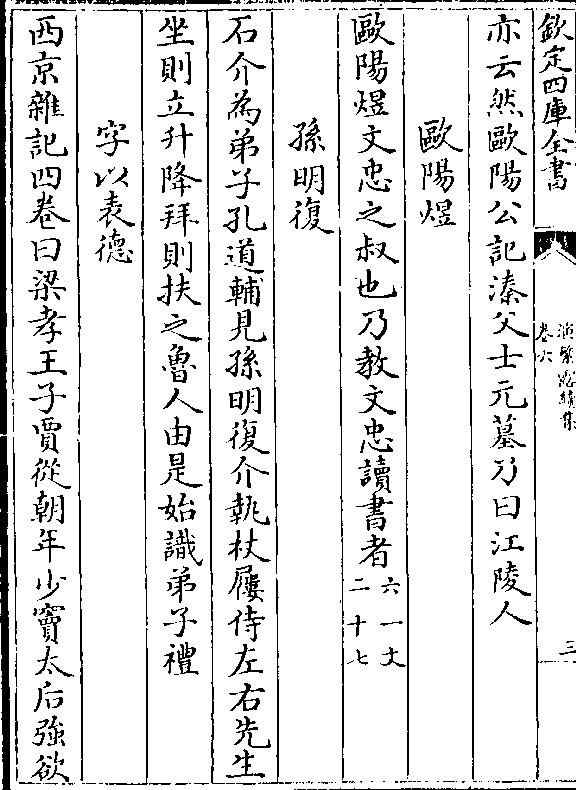 欽定四庫全書
演繁露續集
卷六
三
亦云然歐陽公記溱父士元墓乃曰江陵人
歐陽煜
歐陽煜文忠之叔也乃教文忠讀書者六一文二十七
孫明復
石介為弟子孔道輔見孫明復介執杖屨侍左右先生
坐則立升降拜則扶之魯人由是始識弟子禮
字以表德
西京雜記四卷曰梁孝王子賈從朝年少竇太后強欲